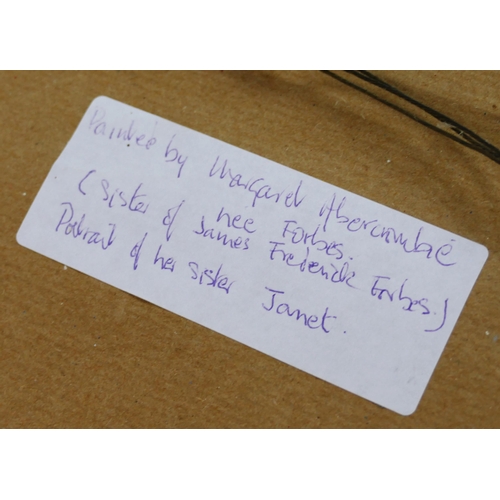 Painted by Margaret Abercrombie
nee Forbes.
(sister of James Frederick Forbes.)
Portrait of her sister Janet.